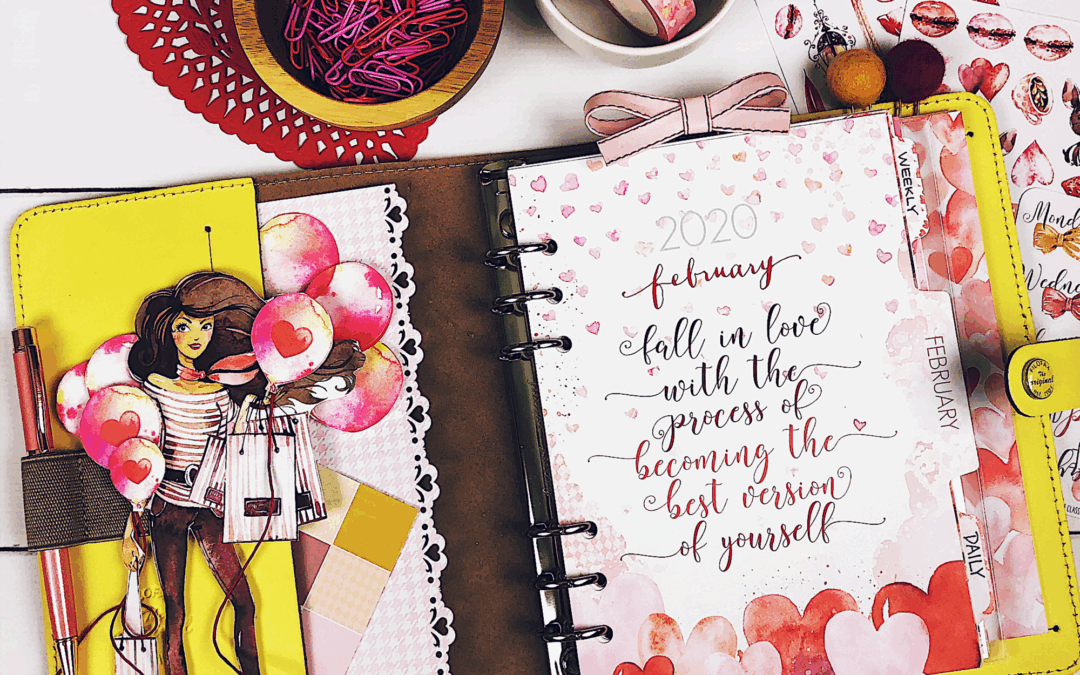 2020
february
fall in love
with the
process of
becoming the
best version
of yourself
WEEKLY
FEBRUARY
DAILY
original